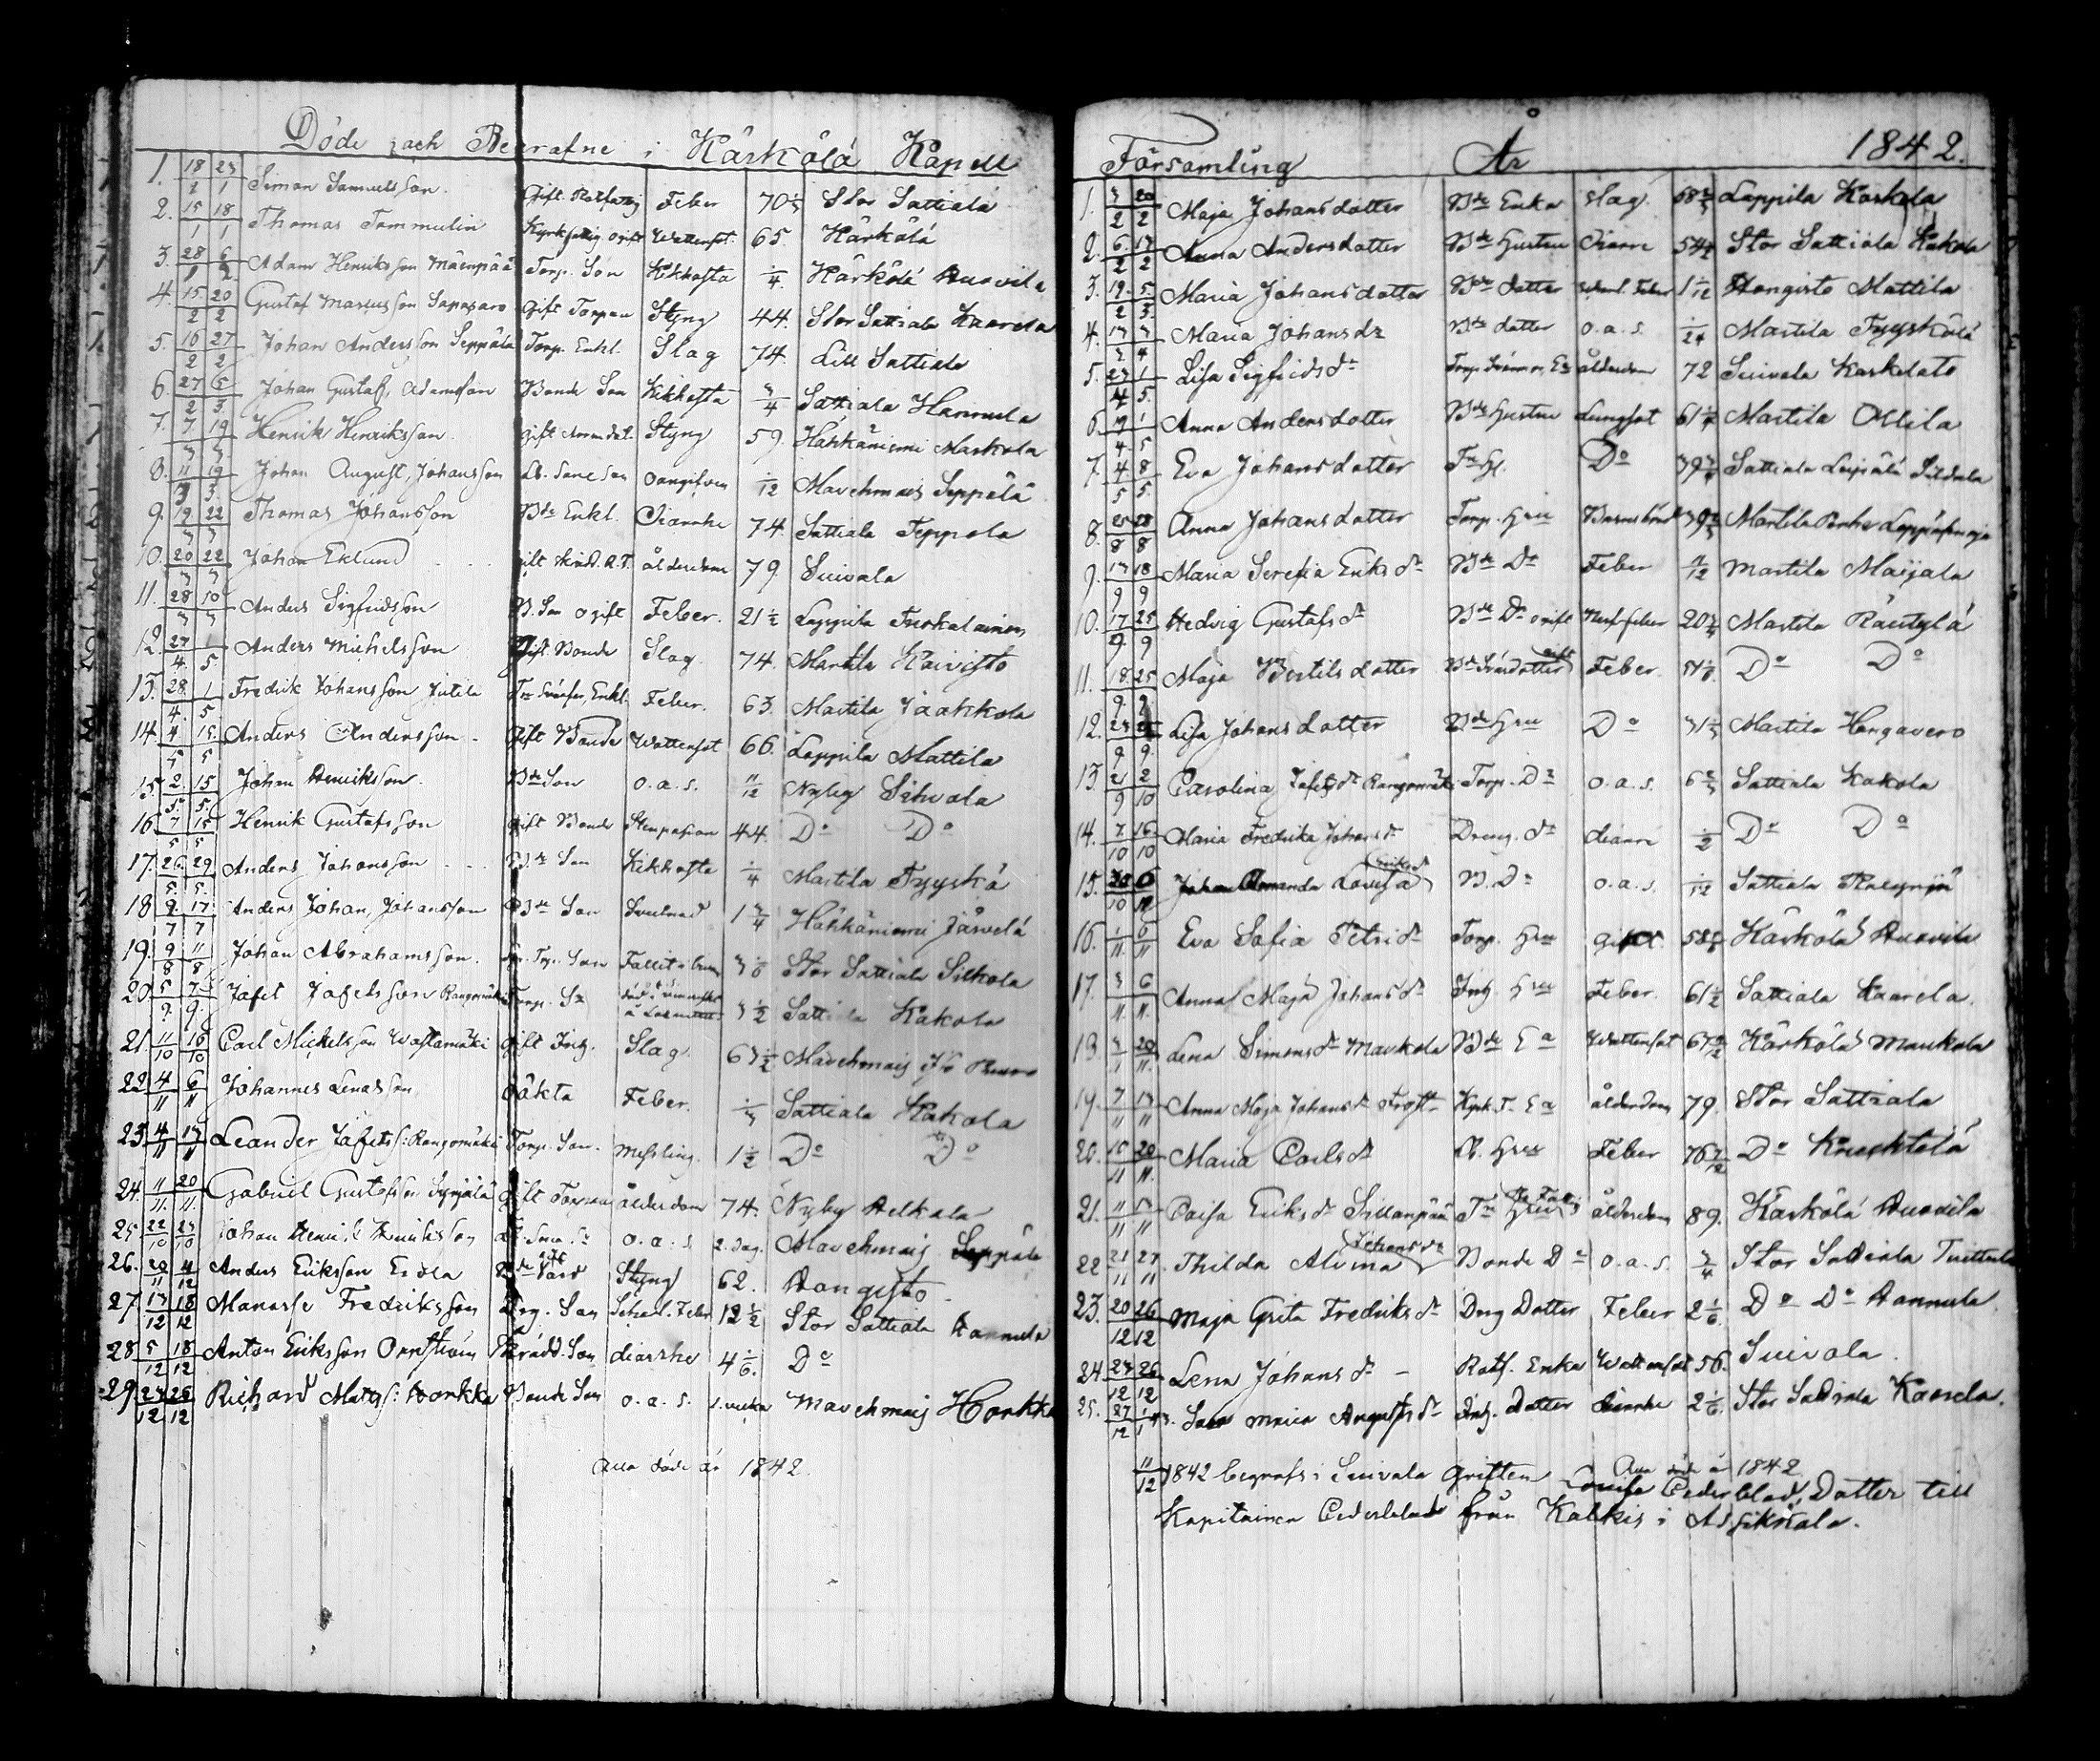 Döde och Begrafne i Kärkölä Kapell
1. 18/1 23/1 Simon Samuelsson Gift Rotfattig Feber 70 1/3 Stor Sattiala
2. 15/1 18/1 Thomas Tammulin Kyrkfattig ogift Wattensot 65. Kärkölä
3. 28/1 6/2 Adam Henriksson Mäenpää Torp. Son Kikhosta 1/4. Kärkölä Anovila
4. 15/2 20/2 Gustaf Mariusson Gift Torpare Styng 44. Stor Sattiala Kaarela
5. 16/2 27/2 Johan Andersson Seppälä Torp. Enkl. Slag 74. Lill Sattiala
6. 27/2 5/3 Johan Gustaf, Adamsson Bonde Son Kikhosta 3/4 Sattiala Hannula
7. 7/3 19/3 Henrik Henriksson gift Styng 59. Hähkäniemi Markola
8. 11/3 19/3 Johan August, Johansson Son oangifven 1/12 Mavehmais Seppälä
9. 19/3 22/3 Thomas Johansson Bde Enkl. Diarrhe 74. Sattiala Teppola
10. 20/3 22/3 Johan Eklund gift ålderdom 79. Suivala
11. 28/3 10/3 Anders Sigfridsson B. Son ogift Feber. 21 1/2 Lappila Tuokalainen
12. 27/4 1/5 Anders Michelsson Gift. Bonde Slag 74. Martila Koivisto
13. 28/4 1/5 Fredrik Johansson Jutila Enkl. Feber. 63. Martila Jaakkola
14. 4/5 15/5 Anders Andersson Gift Bonde Wattensot 66. Lappila Mattila
15. 2/5 15/5 Johan Henriksson Bde Son o.a.s. 11/12 Nyby Sihvola
16. 7/5 15/5 Henrik Gustafsson gift Bonde 44. Do Do
17. 26/5 29/5 Anders Johansson Bde Son Kikhosta 1/4 Martila Tyyskä
18. 9/7 17/7 Anders Johan, Johansson Bde Son 1 3/4 Hähkäniemi Järvelä
19. 9/8 11/8 Johan Abrahamsson Son Fallit i brunn 3 1/6 Stor Sattiala Silkola
20. 5/9 7/9 Jafet Jafetsson Rangomäki Torp. Sn 3 1/2 Sattiala Kakola
21. 11/10 16/10 Carl Mickelsson Wastamäki Gift Inh. Slag 63 1/2 Mavehmais
22. 4/11 6/11 Johannes Lenasson Oäkta Feber. 1/3 Sattiala Kakola
23. 4/11 13/11 Leander Jafets: Rangomäki Torp. Son. Messling. 1 1/2 Do Do
24. 11/11 20/11 Gabriel Gustafsson Syrjälä gift Torpare ålderdom 74. Nyby Alkala
25. 22/10 23/10 Johan Henric Henriksson o.a.s. 2. Dag. Mavehmais Seppälä
26. 20/11 4/12 Anders Eriksson Erola Styng 62. Hongisto
27. 13/12 18/12 Manasse Fredriksson Drg. Son Scharl. Feber 12 1/2 Stor Sattiala Hannula
28. 5/12 18/12 Anton Eriksson Örnström Skrädd. Son diarrhe 4 1/6. Do
29. 23/12 26/12 Richard Matts: Honkka Bonde Son o.a.s. 1. vecka Mavehmais Honkka
Alla döde år 1842.
Församling År 1842.
1. 3/2 20/2 Maja Johansdotter Bde Enka slag. 68 2/3 Lappila Koskela
2. 6/2 13/2 Anna Andersdotter Bde Hustru Diarre 54 1/2 Stor Sattiala Kakola
3. 19/2 5/3 Maria Johansdotter Bde dotter Scharl. Feber 1 1/12 Hongisto Mattila
4. 13/3 3/4 Maria Johansdr Bde dotter o.a.s. 1/24 Martila Tyyskölä
5. 23/4 1/5 Lisa Sigfridsdr ålderdom 72 Suivala
6. 19/4 1/5 Anna Andersdotter Bde Hustru Lungsot 61 1/4 Martila Ollila
7. 4/5 8/5 Eva Johansdotter Do 39 3/4 Sattiala
8. 25/8 28/8 Anna Johansdotter Torp. Hru Barnsbörd 39 2/3 Martila
9. 13/9 18/9 Maria Serefia Eriksdr Bde Dr Feber 4/12 Martila Maijala
10. 17/9 25/9 Hedvig Gustafsdr Bde Dr ogift Nerf-feber 20 2/3 Martila Räntylä
11. 18/9 25/9 Maja Bertilsdotter Feber Do Do
12. 23/9 25/9 Lisa Johansdotter Bde Hru Do 31 1/3 Martila Hongavero
13. 2/9 2/10 Carolina Jafetsdr Rangomäki Torp. Dr o.a.s. 6 2/3 Sattiala Kakola
14. 7/10 16/10 Maria Fredrika Johansdr Dreng. dr diarre 1/2 Do Do
15. Johan Amanda Lovisa B. Dr o.a.s. 1/12 Sattiala
16. 1/11 6/11 Eva Sofia Petridr Torp. Hru Gikt Kärkölä Anovila
17. 3/11 6/11 Anna Maja Johansdr Inh. Hru Feber. 61 1/2 Sattiala Kaarela.
18. Lena Simonsdr Maukola Bde Ea Wattensot Kärkölä Maukola
19. 7/11 13/11 Anna Maja Johansdr Frost Kyrk.F. Ea ålderdom 79. Stor Sattiala
20. 15/11 20/11 Maria Carlsdr B. Hru Feber 76 7/12 Do Knuuttila
21. Caisa Eriksdr Sillanpää Hru ålderdom 89. Kärkölä Anovila
22. 21/11 27/11 Thilda Alvina Johansdr Bonde Dr o.a.s. 3/4 Stor Sattiala
23. 20/12 26/12 Maja Greta Fredriksdr Drng Dotter Feber 2 1/6. Do Do Hannula
24. 23/12 26/12 Lena Johansdr Rotf. Enka Wattensot 56. Suivala.
25. 27/12 1/1 43. Maria Augustsdr Inh. Dotter diarrhe 2 1/6 Stor Sattiala Kaarela.
Alla döde år 1842
11/12 1842 begrafs i Suivala griften Lovisa Cederblad, Dotter till
Kapitainen Cederblad från Kalkis i Asikkala.